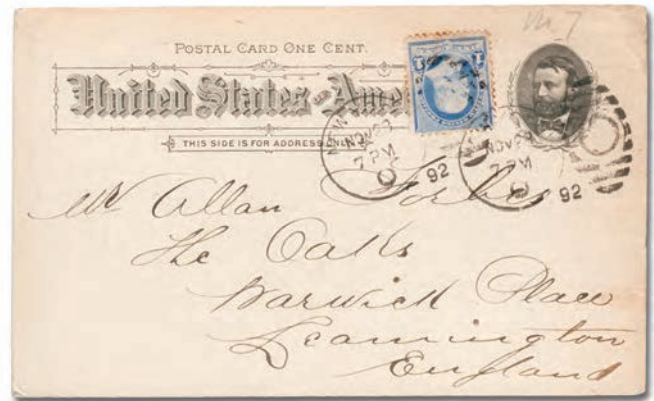 M 7
POSTAL CARD ONE CENT.
United States of Ame
THIS SIDE IS FOR ADDRESS ONLY
NEW
NOV 22
7 PM
92
NOV 22
7 PM
92
Mr Allan Forbes
The Oaks
Warwick Place
Leamington
England